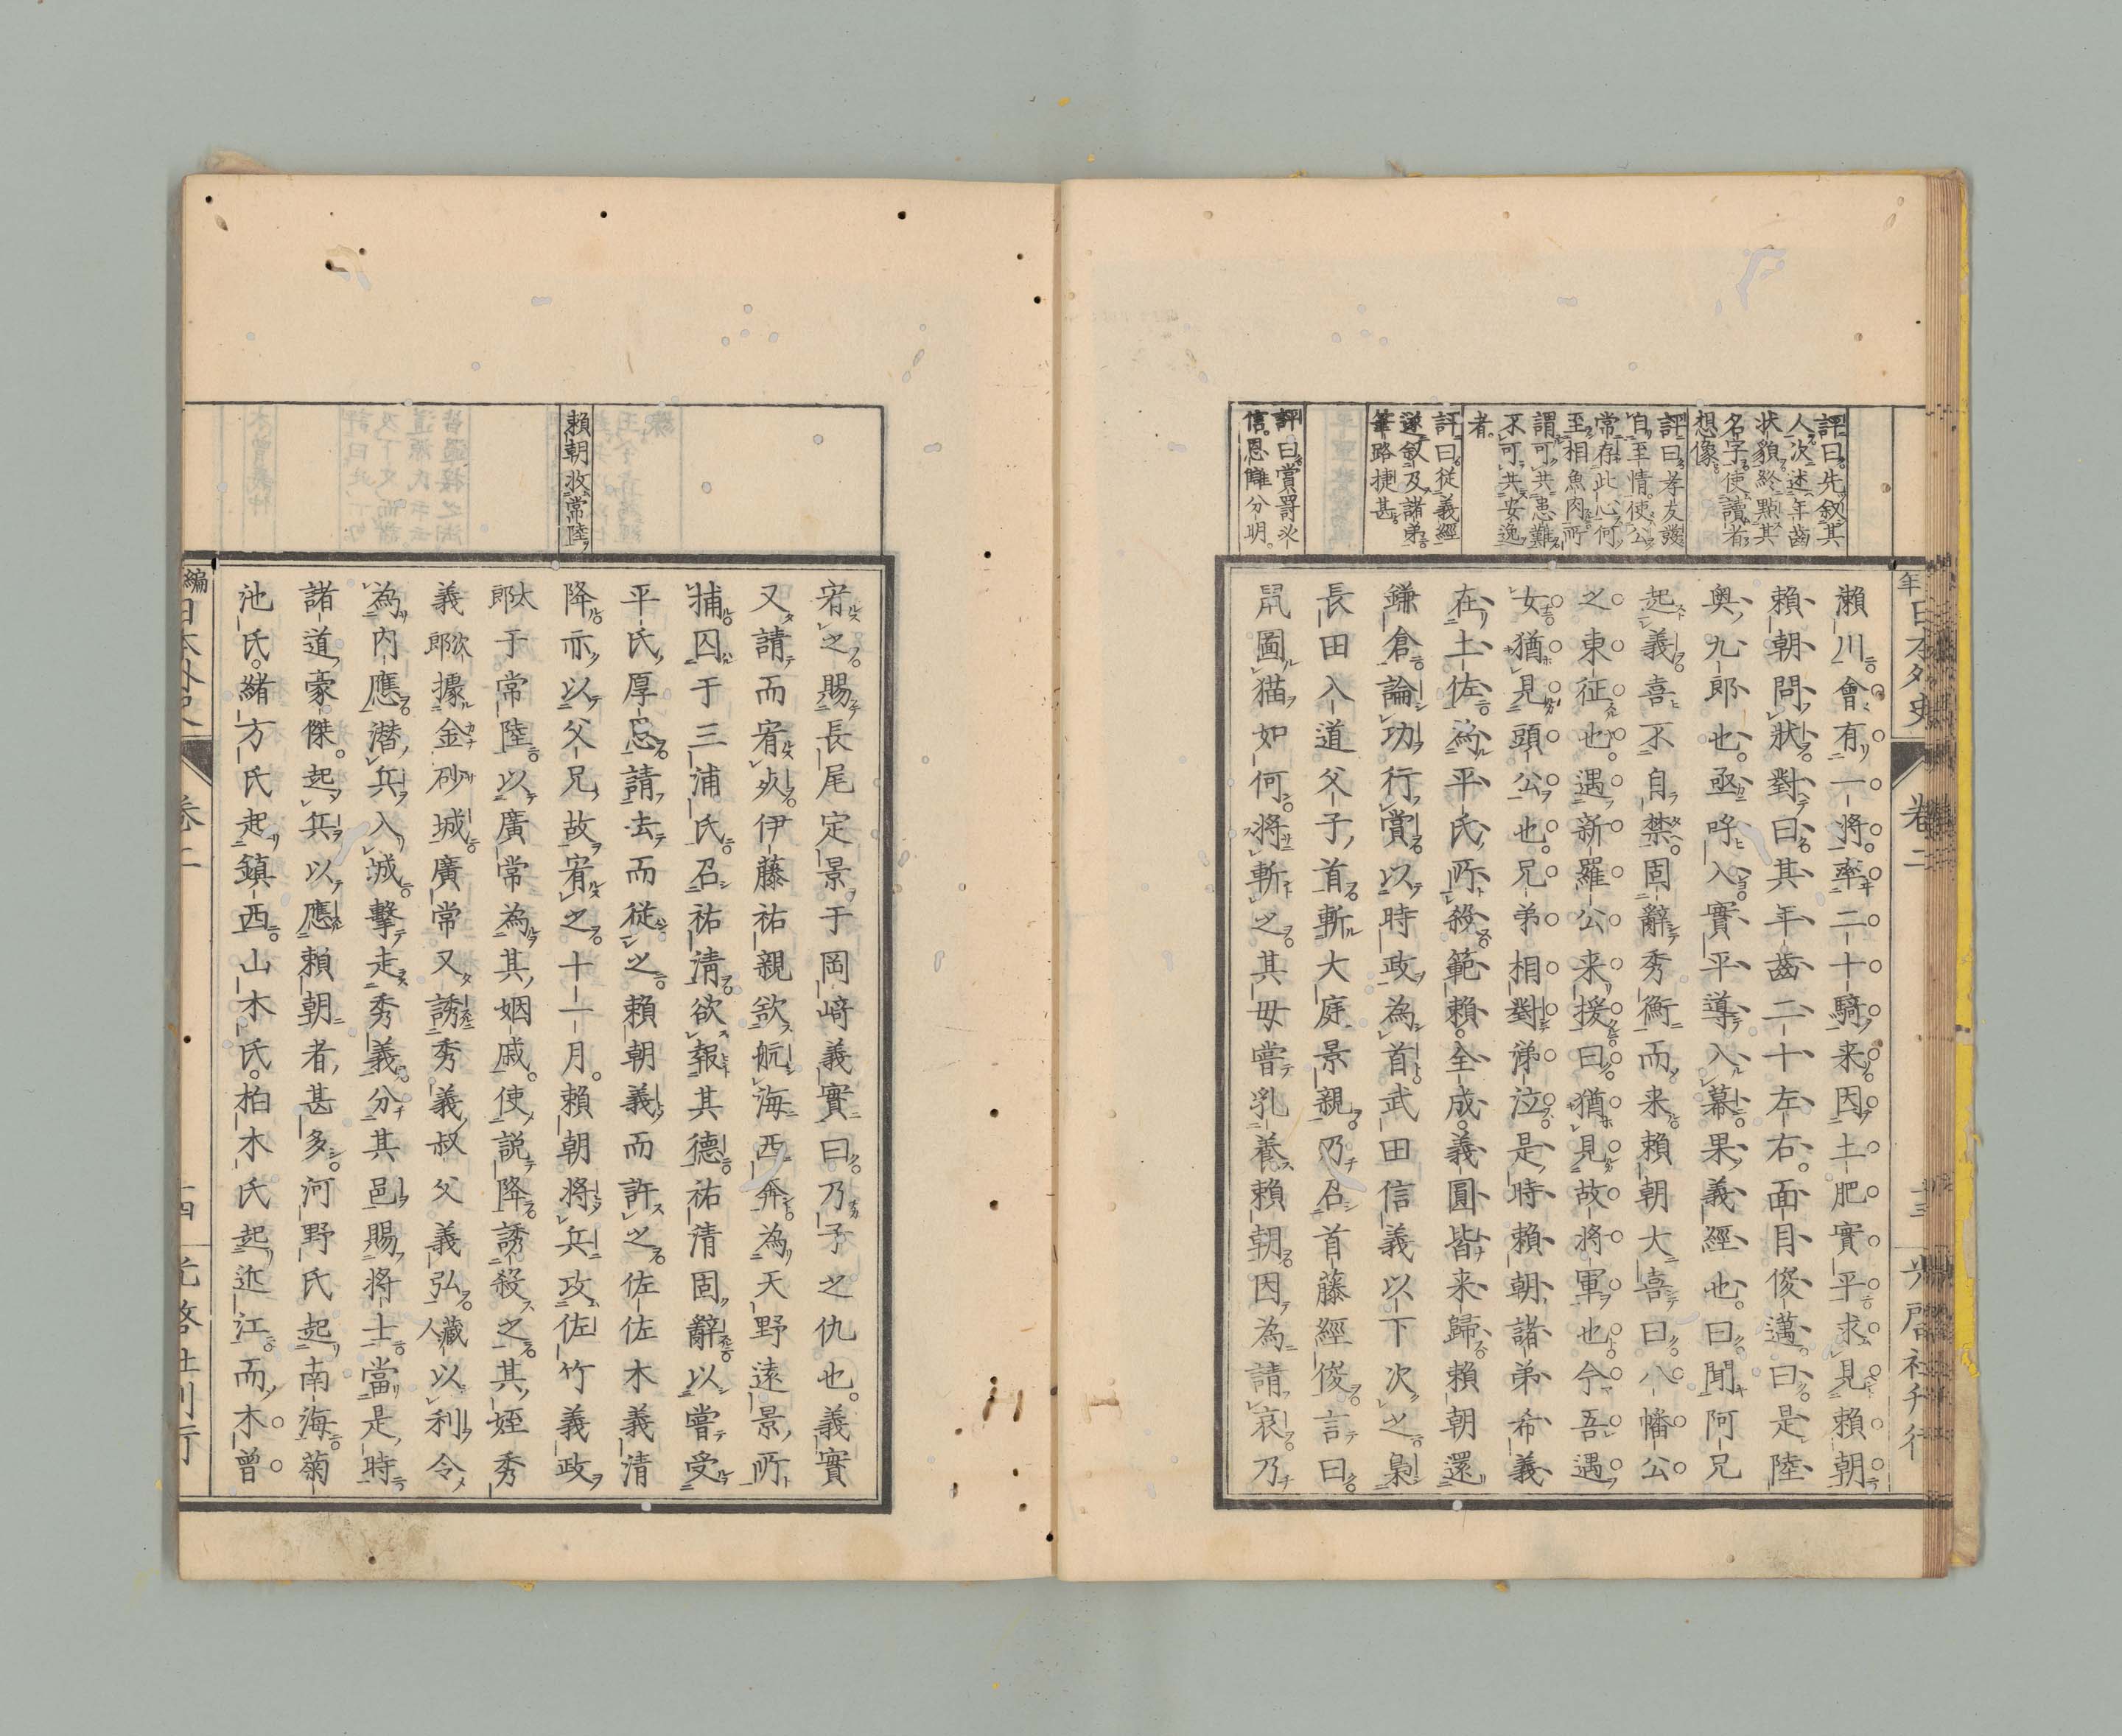 評曰先叙其
人次述年齒
状貌終點其
名字使讀者
想像
評曰孝友發
自至情使公
常存此心何
至相魚肉所
謂可共患難
不可共安逸
者
評曰従義經
遂叙及諸弟
筆路捷甚
評曰賞罰必
信恩讎分明
瀬川會有一將率二十騎来因土肥實平求見賴朝
賴朝問狀對曰其年齒二十左右面目俊邁曰是陸
奥九郎也亟呼入實平導入幕果義經也曰聞阿兄
起義喜不自禁固辭秀衡而来賴朝大喜曰八幡公
之東征也遇新羅公来援曰猶見故將軍也今吾遇
女猶見頭公也兄弟相對涕泣是時賴朝諸弟希義
在土佐為平氏所殺範賴全成義圓皆来歸賴朝還
鎌倉論功行賞以時政為首武田信義以下次之梟
長田入道父子首斬大庭景親乃召首藤經俊言曰
鼠圖猫如何將斬之其母嘗乳養賴朝因為請哀乃
年
日本外史
卷二
十三
光啓社刊行
賴朝攻常陸
宥之賜長尾定景于岡﨑義實曰乃子之仇也義實
又請而宥焉伊藤祐親欲航海西奔為天野遠景所
捕囚于三浦氏召祐清欲報其德祐清固辭以嘗受
平氏厚恩請去而從之賴朝義而許之佐佐木義清
降亦以父兄故宥之十一月賴朝將兵攻佐竹義政
太郎于常陸以廣常為其姻戚使説降誘殺之其姪秀
義次郎據金砂城廣常又誘秀義叔父義弘藏人以利令
為内應潜兵入城擊走秀義分其邑賜將士當是時
諸道豪傑起兵以應賴朝者甚多河野氏起南海菊
池氏緒方氏起鎮西山木氏柏木氏起近江而木曾
編
日本外史
卷二
十四
光啓社刊行